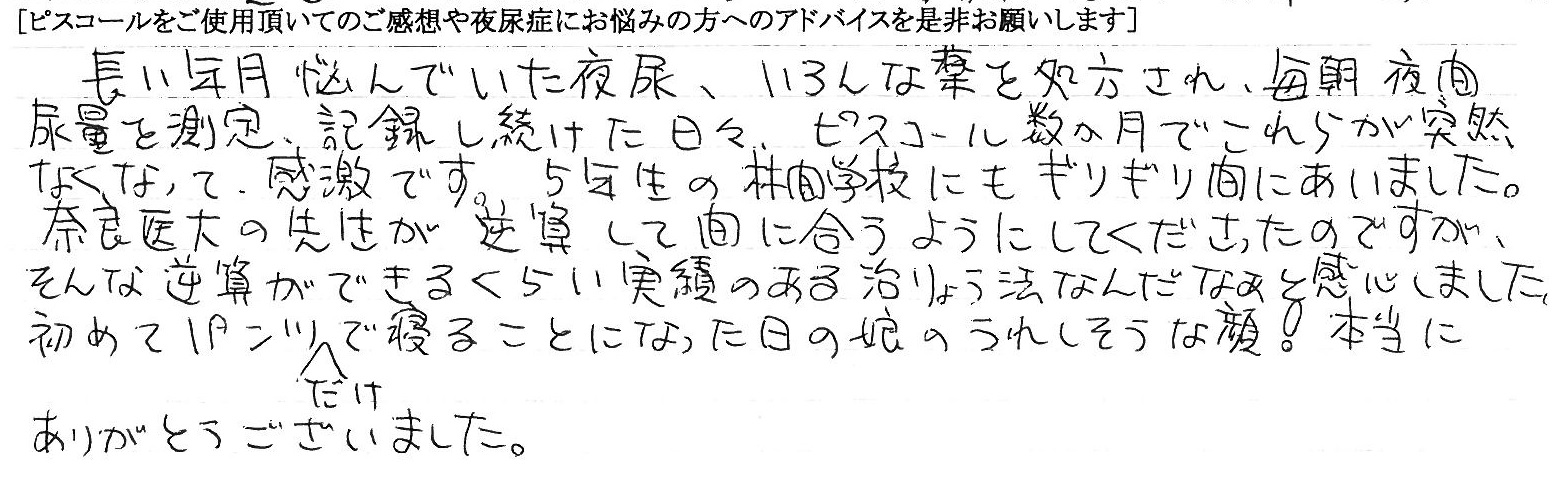 [ピスコールをご使用頂いてのご感想や夜尿症にお悩みの方へのアドバイスを是非お願いします]
長い年月悩んでいた夜尿、いろんな薬を処方され、毎朝夜間
尿量を測定、記録し続けた日々、ピスコール数か月でこれらが突然
なくなって、感激です。5年生の林間学校にもギリギリ間にあいました。
奈良医大の先生が逆算して間に合うようにしてくださったのですが、
そんな逆算ができるくらい実績のある治りょう法なんだなぁと感心しました。
初めてパンツだけで寝ることになった日の娘のうれしそうな顔!本当に
ありがとうございました。